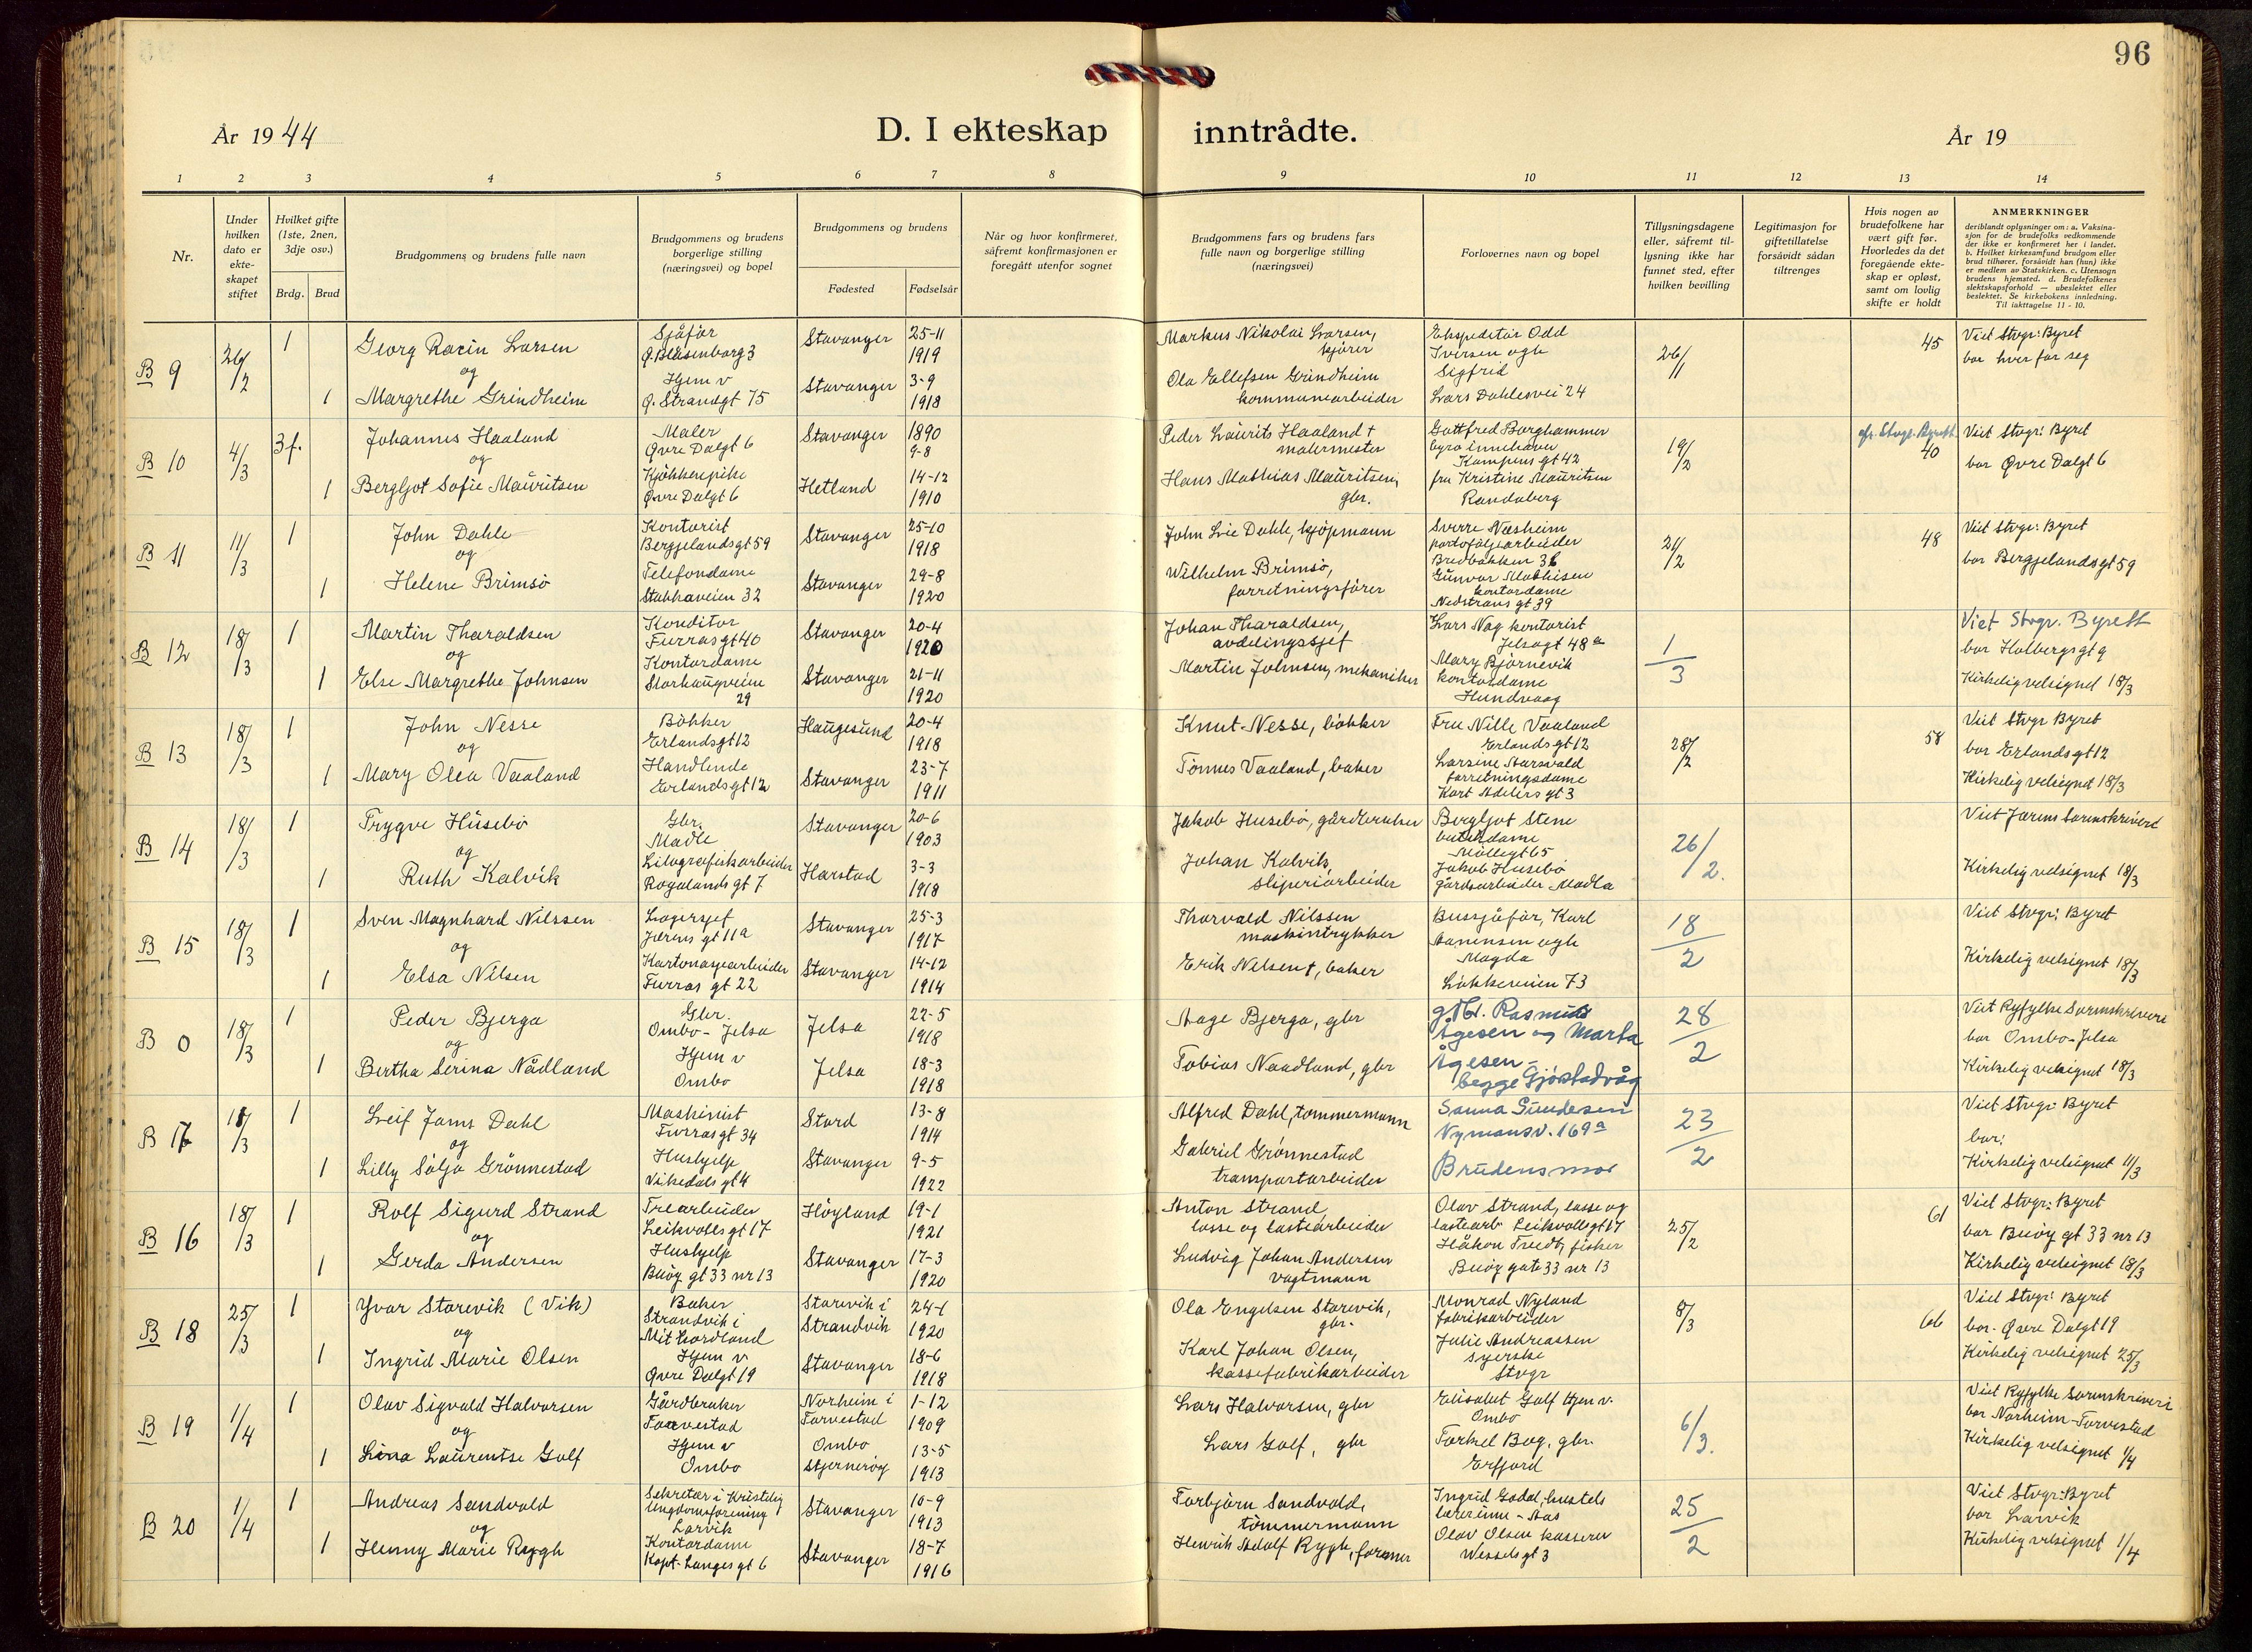 96
År 1944
D. I ekteskap inntrådte.
År 19
1 2 3 4 5 6 7 8 9 10 11 12 13 14
Nr.
Under hvilken dato er ekte- skapet stiftet
Hvilket gifte (1ste, 2nen, 3dje osv.)
Brdg. Brud
Brudgommens og brudens fulle navn
Brudgommens og brudens borgerlige stilling (næringsvei) og bopel
Brudgommens og brudens
Fødested Fødselsår
Når og hvor konfirmeret, såfremt konfirmasjonen er foregått utenfor sognet
Brudgommens fars og brudens fars fulle navn og borgerlige stilling (næringsvei)
Forlovernes navn og bopel
Tillysningsdagene eller, såfremt til- lysning ikke har funnet sted, efter hvilken bevilling
Legitimasjon for giftetillatelse forsåvidt sådan tiltrenges
Hvis nogen av brudefolkene har vært gift før. Hvorledes da det foregående ekte- skap er opløst, samt om lovlig skifte er holdt
ANMERKNINGER
deriblandt oplysninger om: a. Vaksina-
sjon for de brudefolks vedkommende
der ikke er konfirmeret her i landet.
b. Hvilket kirkesamfund brudgom eller
brud tilhører, forsåvidt han (hun) ikke
er medlem av Statskirken. c. Utensogn
brudens hjemsted. d. Brudefolkenes
slektskapsforhold — ubeslektet eller
beslektet. Se kirkebokens innledning.
Til iakttagelse 11 - 10.
B 9 26/2 1 Georg Racin Larsen Sjåfør Ø. Blåsenborg 3 Stavanger 25-11 1919 Markus Nikolai Larsen, kjører Ekspeditør Odd Iversen ogh Sigfrid Lars Dahlesvei 24 26/1 45 Viet Stvgr: Byret bor hver for seg
og
1 Margrethe Grindheim Hjem v Ø. Strandgt 75 Stavanger 3-9 1918 Ola Ellefsen Grindheim kommunearbeider
B 10 4/3 3f. Johannes Haaland Maler Øvre Dalgt 6 Stavanger 1890 9-8 Peder Laurits Haaland † malermester Gottfred Borghammer byråinnehaver Kampens gt 42 19/2 40 Viet Stvgr: Byret bor Øvre Dalgt 6
og
1 Bergljot Sofie Mauritsen Kjøkkenpike Øvre Dalgt 6 Hetland 14-12 1910 Hans Mathias Mauritsen, gbr. fru Kristine Mauritsen Randaberg
B 11 11/3 1 John Dahle Kontorist Bergjelandsgt 59 Stavanger 25-10 1918 John Lie Dahle, kjøpmann Sverre Næsheim portoføljearbeider Bredbakken 36 21/2 48 Viet Stvgr: Byret bor Bergjelandsgt 59
og
1 Helene Brimsø Telefondame Stokkaveien 32 Stavanger 29-8 1920 Wilhelm Brimsø, forretningsfører Gunvor Mathisen kontordame Nedstrans gt 39
B 12 18/3 1 Martin Tharaldsen Konditor Furrasgt 40 Stavanger 20-4 1920 Johan Tharaldsen, avdelingssjef Lars Nag kontorist Jelsagt 48a 1/3 Viet Stvgr. Byrett bor Holbergsgt 9 Kirkelig velsignet 18/3
og
1 Else Margrethe Johnsen Kontordame Storhaugveien 29 Stavanger 21-11 1920 Martin Johnsen, mekaniker Mary Bjørnevik kontordame Hundvaag
B 13 18/3 1 John Nesse Bøkker Erlandsgt 12 Haugesund 20-4 1918 Knut Nesse, bøkker Fru Nille Vaaland Erlandsgt 12 28/2 58 Viet Stvgr Byret bor Erlandsgt 12 Kirkelig velsignet 18/3
og
1 Mary Olea Vaaland Handlende Erlandsgt 12 Stavanger 23-7 1911 Tønnes Vaaland, baker Larsine forretningsdame Kort Adelers gt 3
B 14 18/3 1 Trygve Husebø Gbr. Madle Stavanger 20-6 1903 Jakob Husebø, gårdbruker Bergljot Stene Møllegt 65 26/2. Viet Jærens Sorenskriveri Kirkelig velsignet 18/3
og
1 Ruth Kalvik Litografiskarbeider Rogalands gt 7 Harstad 3-3 1918 Johan Kalvik, sliperiarbeider Jakob Husebø gårdsarbeider Madla
B 15 18/3 1 Sven Magnhard Nilssen Lagersjef Jærens gt 11a Stavanger 25-3 1917 Thorvald Nilssen maskintrykker Bussjåfør, Karl Aanensen ogh Magda Løkkeveien 73 18/2 Viet Stvgr: Byret Kirkelig velsignet 18/3
og
1 Elsa Nilsen Kartonasjearbeider Furras gt 22 Stavanger 14-12 1914 Erik Nilsen †, baker
B 0 18/3 1 Peder Bjerga Gbr. Ombo- Jelsa Jelsa 22-5 1918 Aage Bjerga, gbr Rasmus Ågesen og Marta Ågesen - begge Gjøstadvåg 28/2 Viet Ryfylke Sorenskriveri bor Ombo-Jelsa Kirkelig velsignet 18/3
og
1 Bertha Serina Nådland Hjem v Ombo Jelsa 18-3 1918 Tobias Naadland, gbr
B 17 1 Leif Jams Dahl Maskinist Furrasgt 34 Stord 13-8 1914 Alfred Dahl, tømmermann Sanna Gundersen Nymansv. 169a 23/2 Viet Stvgr: Byret bor: Kirkelig velsignet 11/3
og
1 Lilly Solja Grønnestad Hushjelp Vikedals gt 4 Stavanger 9-5 1922 Gabriel Grønnestad transportarbeider Brudens mor
B 16 18/3 1 Rolf Sigurd Strand Trearbeider Leikvolls gt 17 Høyland 19-1 1921 Anton Strand, losse og lastearbeider Olav Strand, losse og lastearb Leikvollsgt 17 25/2 61 Viet Stvgr: Byret bor Buøy gt 33 nr 13 Kirkelig velsignet 18/3
og
1 Gerda Andersen Hushjelp Buøy gt 33 nr 13 Stavanger 17-3 1920 Ludvig Johan Andersen vagtmann Håkon Tvedt, fisker Buøy gate 33 nr 13
B 18 25/3 1 Yvar Storevik (Vik) Baker Strandvik i Mithordland Storevik i Strandvik 24-1 1920 Ola Engelsen Storevik, gbr. Monrad Nyland fabrikarbeider 8/3 66 Viet Stvgr: Byret bor- Øvre Dalgt 19 Kirkelig velsignet 25/3
og
1 Ingrid Marie Olsen Hjem v Øvre Dalgt 19 Stavanger 18-6 1918 Karl Johan Olsen, kassefabrikarbeider Julie Andreassen syerske Stvgr
B 19 1/4 1 Olav Sigvald Halvorsen Gårdbruker Torvestad Norheim i Torvestad 1-12 1909 Lars Halvorsen, gbr Elisabet Golf Hjem v. Ombo 6/3. Viet Ryfylke Sorenskriveri bor Norheim-Torvestad Kirkelig velsignet 1/4
og
1 Lina Laurentse Golf Hjem v Ombo Ombo Stjernerøy 13-5 1913 Lars Golf, gbr Torkel Bog, gbr. Erfjord
B 20 1/4 1 Andreas Sandvold Sekretær i Kristelig Ungdomsforening Larvik Stavanger 10-9 1913 Torbjørn Sandvold, tømmermann Ingrid lærerinne - Aas 25/2 Viet Stvgr: Byret bor Larvik Kirkelig velsignet 1/4
og
1 Henny Marie Rygh Kontordame Kapt. Langes gt 6 Stavanger 18-7 1916 Henrik Adolf Rygh, formann Olav Olsen kasserer Wesselsgt 3